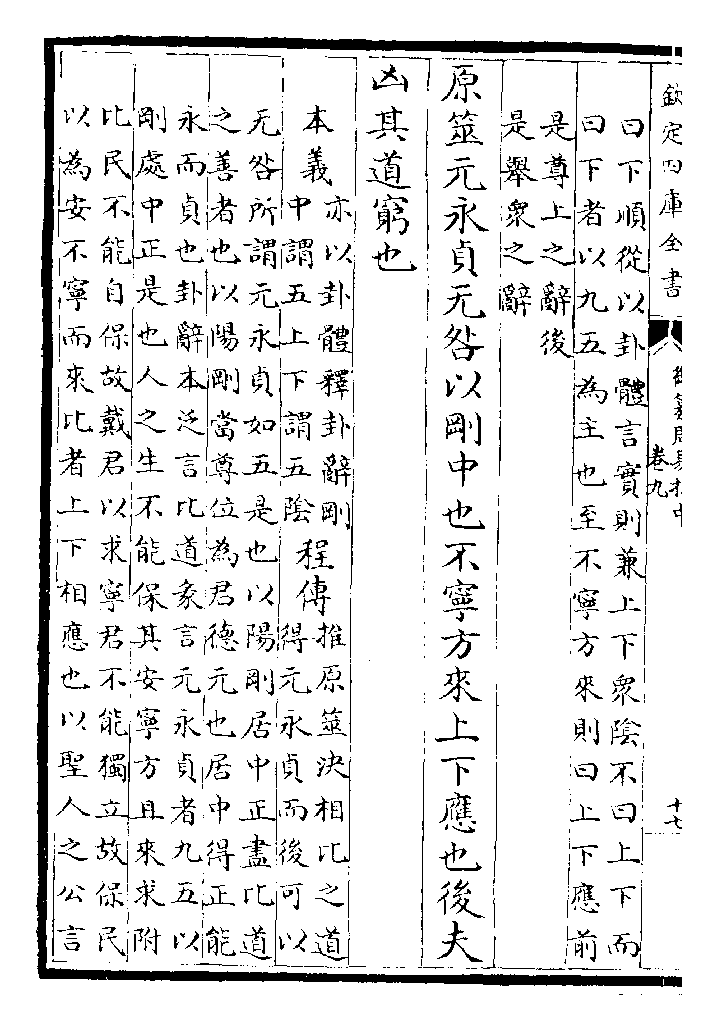 欽定四庫全書
卷九
十七
曰下順從以卦體言實則兼上下衆陰不曰上下而
曰下者以九五為主也至不寧方來則曰上下應前
是尊上之辭後
是舉衆之辭
原筮元永貞无咎以剛中也不寧方來上下應也後夫
凶其道窮也
本義
亦以卦體釋卦辭剛
中謂五上下謂五陰
程傳
推原筮決相比之道
得元永貞而後可以
无咎所謂元永貞如五是也以陽剛居中正盡比道
之善者也以陽剛當尊位為君德元也居中得正能
永而貞也卦辭本泛言比道彖言元永貞者九五以
剛處中正是也人之生不能保其安寧方且來求附
比民不能自保故戴君以求寧君不能獨立故保民
以為安不寧而來比者上下相應也以聖人之公言